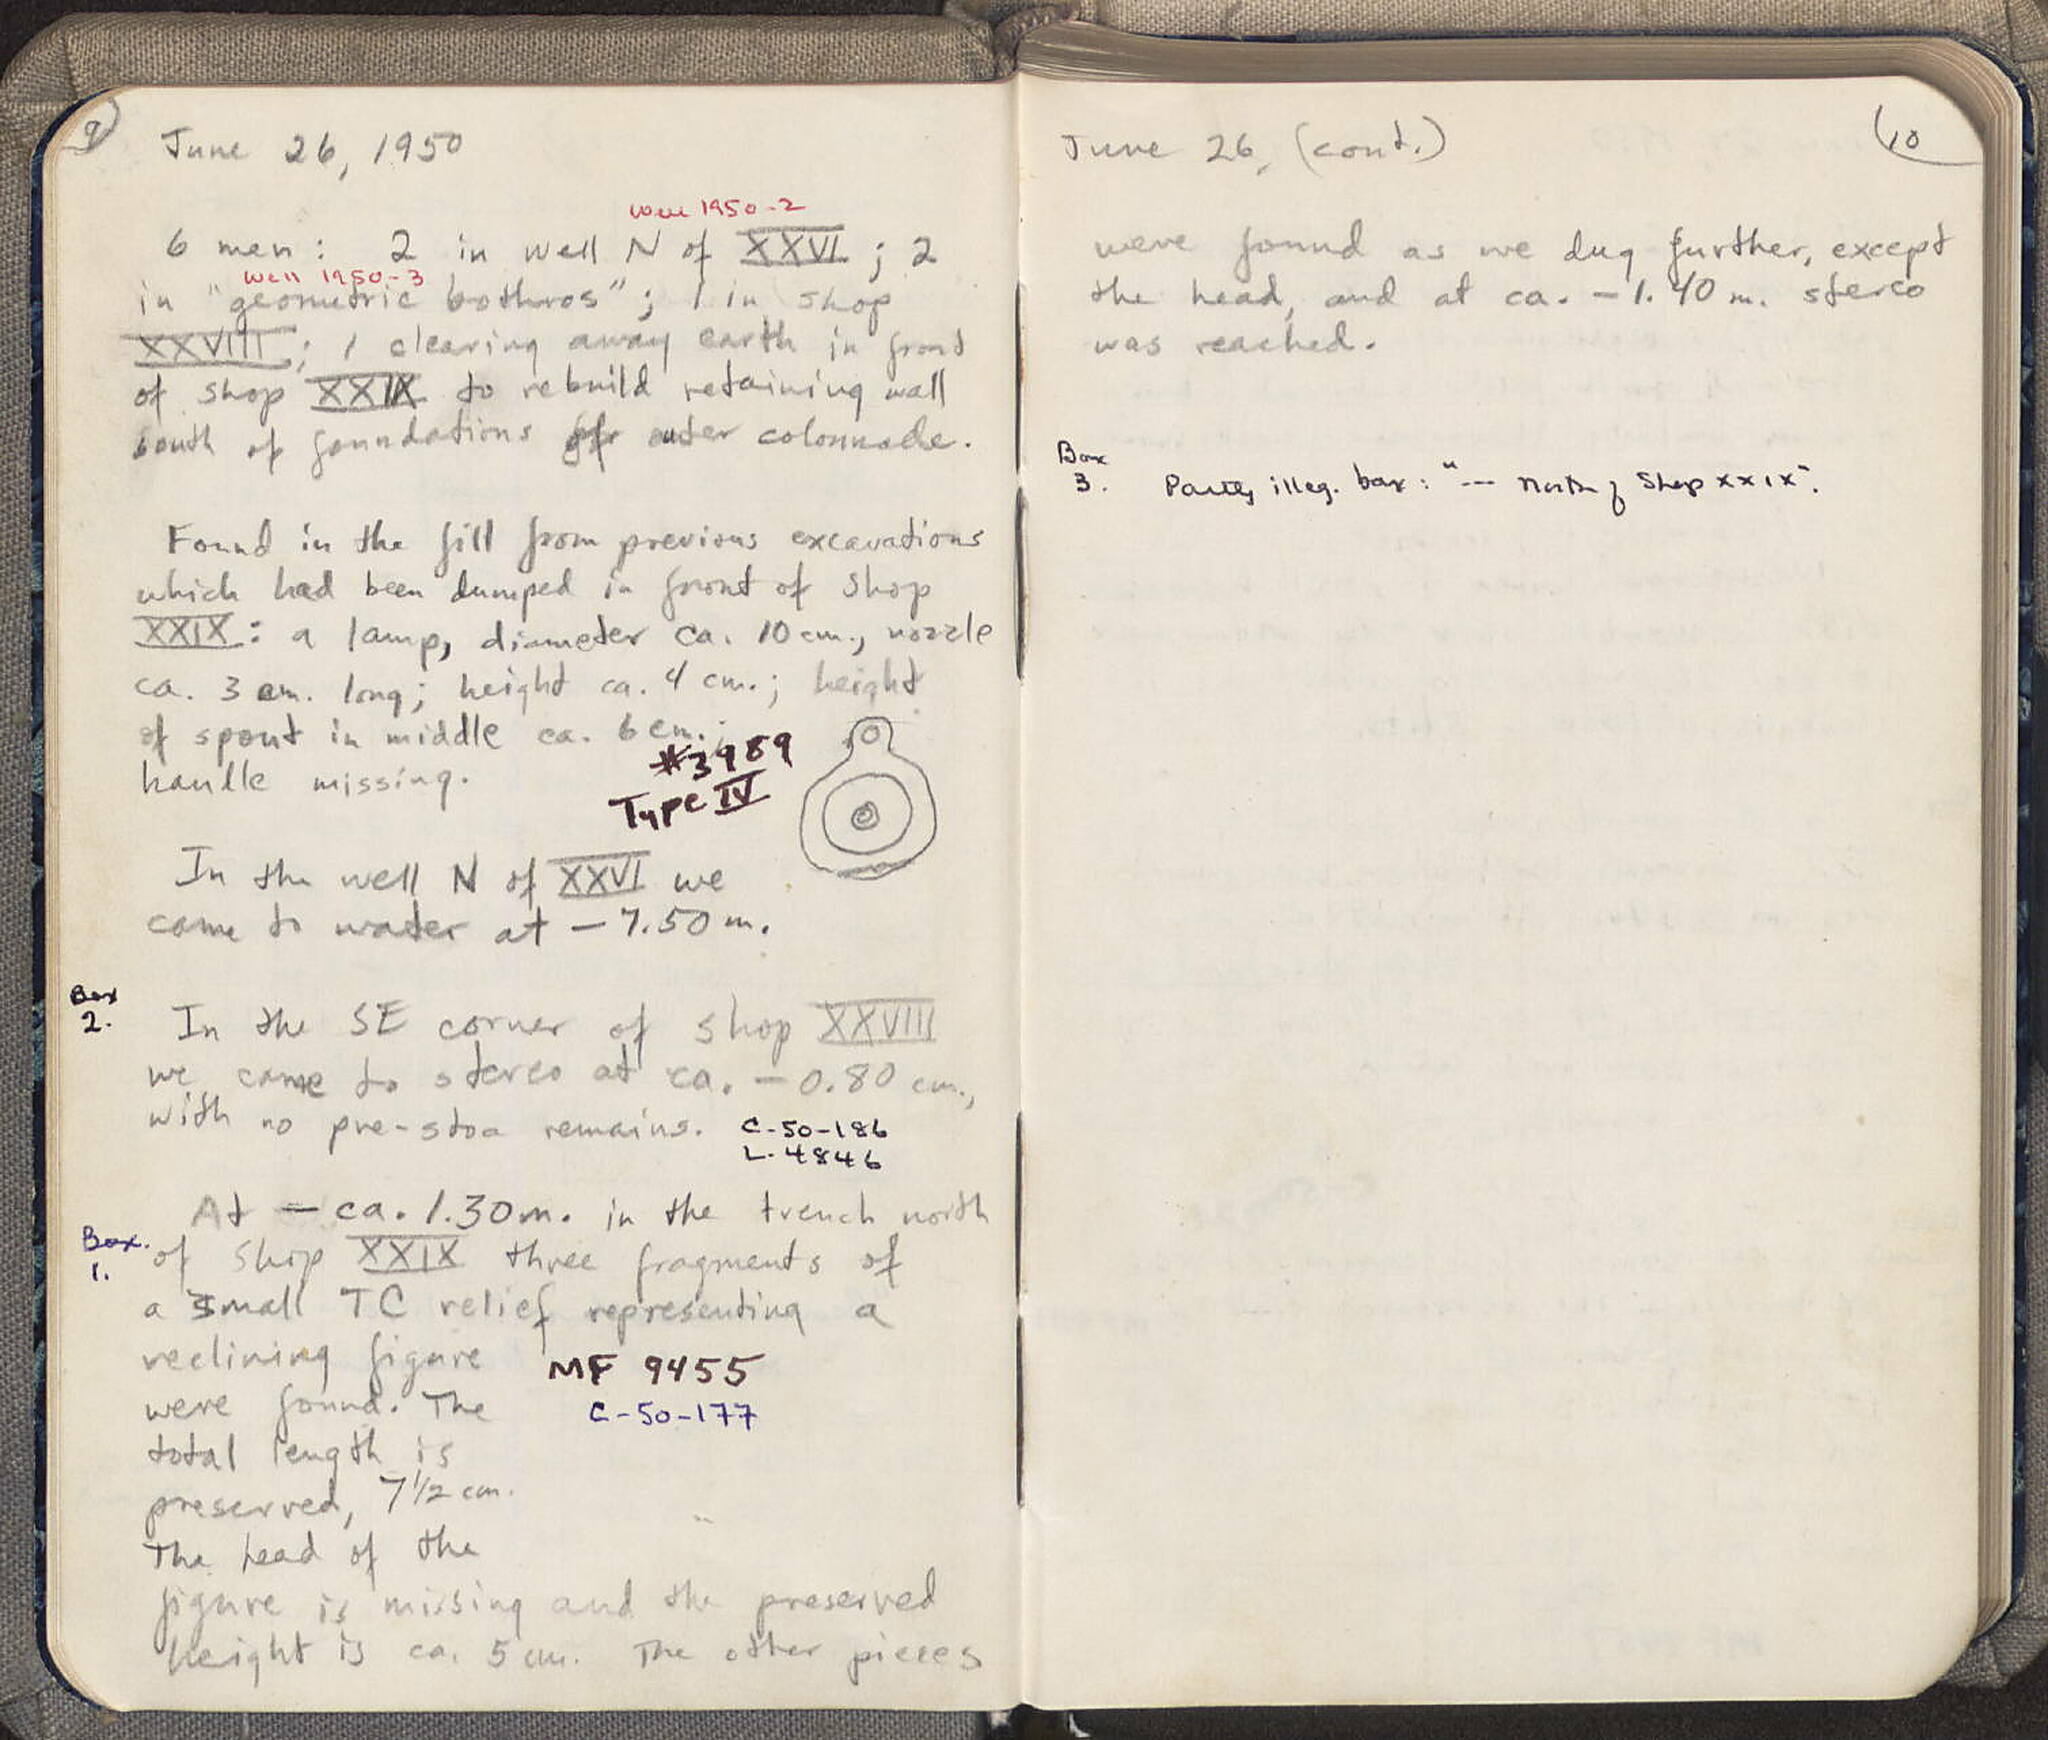 9
June 26, 1950
Well 1950-2
6 men: 2 in well N of XXVI; 2
Well 1950-3
in "geometric bothros"; 1 in shop
XXVIII; 1 clearing away earth in front
of shop XXIX to rebuild retaining wall
south of foundations of outer colonnade.
Found in the fill from previous excavations
which had been dumped in front of shop
XXIX: a lamp, diameter ca. 10 cm., nozzle
ca. 3 cm. long; height ca. 4 cm.; height
of spout in middle ca. 6 cm.;
handle missing.
#3989
Type IV
In the well N of XXVI we
came to water at - 7.50 m.
Box
2.
In the SE corner of shop XXVIII
we came to stereo at ca. - 0.80 cm.,
with no pre-stoa remains.
C-50-186
L-4846
At - ca. 1.30 m. in the trench north
Box
1.
of shop XXIX three fragments of
a small TC relief representing a
reclining figure
MF 9455
were found. The
C-50-177
total length is
preserved, 7 1/2 cm.
The head of the
figure is missing and the preserved
height is ca. 5 cm. The other pieces
10
June 26, (cont.)
were found as we dug further, except
the head, and at ca. - 1.40 m. stereo
was reached.
Box
3.
Partly illeg. box: "--- North of Shop XXIX".